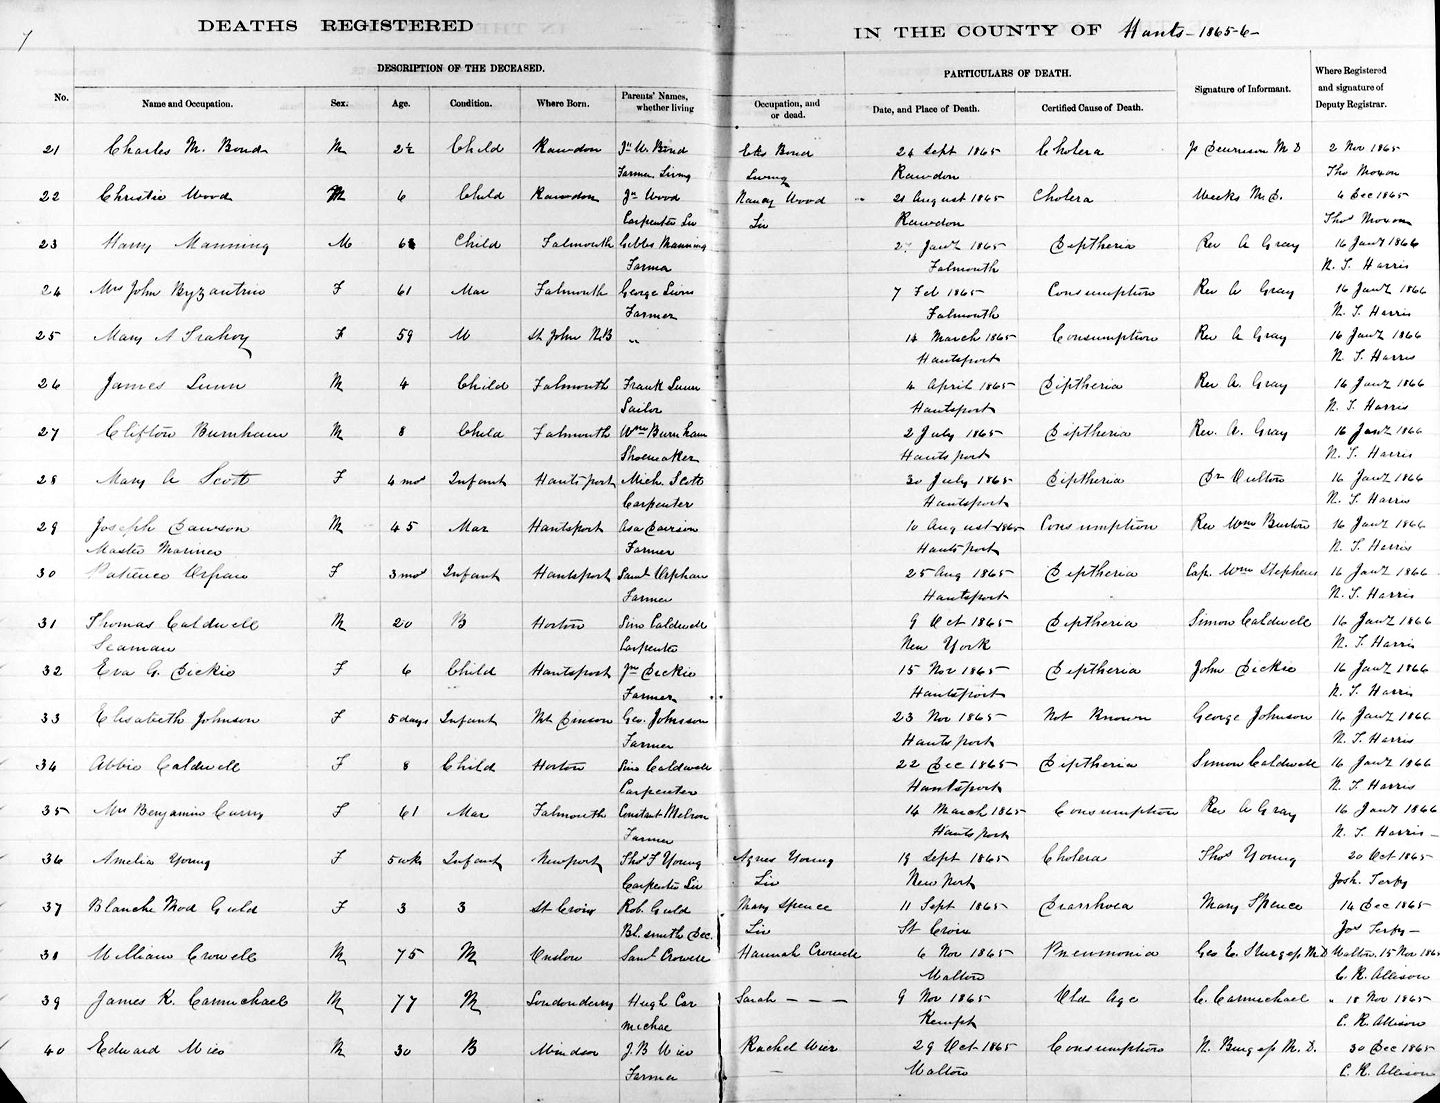 7
DEATHS REGISTERED IN THE COUNTY OF Hants - 1865-6 -
DESCRIPTION OF THE DECEASED. PARTICULARS OF DEATH.
No. Name and Occupation. Sex. Age. Condition. Where Born. Parents' Names, whether living Occupation, and or dead. Date, and Place of Death. Certified Cause of Death. Signature of Informant. Where Registered and signature of Deputy Registrar.
21 Charles M. Bond M 2½ Child Rawdon Jn W. Bond Bond 24 Sept 1865 Cholera M D 2 Nov 1865
Farmer Living Living Rawdon Tho Moxon
22 Christie Wood M 6 Child Rawdon Jn Wood Nancy Wood 21 August 1865 Cholera Weeks M.D. 6 Dec 1865
Carpenter Liv Liv Rawdon Thos Moxon
23 Harry Manning M Child Falmouth Gibbs Manning Jany 1865 Diptheria Rev A Gray 16 Jany 1866
Farmer Falmouth N. T. Harris
24 Mrs John Byzantrio F 61 Mar Falmouth George Lions 7 Feb 1865 Consumption Rev A Gray 16 Jany 1866
Farmer Falmouth N. T. Harris
25 Mary A Trahoy F 59 W St John N.B " 14 March 1865 Consumption Rev A Gray 16 Jany 1866
Hantsport N. T. Harris
26 James Lunn M 4 Child Falmouth Frank Lunn 4 April 1865 Diptheria Rev A. Gray 16 Jany 1866
Sailor Hantsport N. T. Harris
27 Clifton Burnham M 8 Child Falmouth Wm Burnham 2 July 1865 Diptheria Rev. A. Gray 16 Jany 1866
Shoemaker Hantsport N. T. Harris
28 Mary A Scott F 4 mos Infant Hantsport Mich Scott 30 July 1865 Diptheria Dr 16 Jany 1866
Carpenter Hantsport N. T. Harris
29 Joseph Dawson M 45 Mar Hantsport Asa Davison 10 August 1865 Consumption Rev Wm Burton 16 Jany 1866
Master Mariner Farmer Hantsport N. T. Harris
30 Patience Orpan F 3 mos Infant Hantsport Saml Orphan 25 Aug 1865 Diptheria Cap. Wm Stephens 16 Jany 1866
Farmer Hantsport N. T. Harris
31 Thomas Caldwell M 20 B Horton Simo Caldwell 9 Oct 1865 Diptheria Simon Caldwell 16 Jany 1866
Seaman Carpenter New York N. T. Harris
32 Eva G. Dickie F 6 Child Hantsport Jno Dickie 15 Nov 1865 Diptheria John Dickie 16 Jany 1866
Farmer Hantsport N. T. Harris
33 Elisabeth Johnson F 5 days Infant Mt Denson Geo. Johnson 23 Nov 1865 Not Known George Johnson 16 Jany 1866
Farmer Hantsport N. T. Harris
34 Abbie Caldwell F 8 Child Horton Simo Caldwell 22 Dec 1865 Diptheria Simon Caldwell 16 Jany 1866
Carpenter Hantsport N. T. Harris
35 Mrs Benjamin Curry F 61 Mar Falmouth Constant 14 March 1865 Consumption Rev A Gray 16 Jany 1866
Farmer Hantsport N. T. Harris -
36 Amelia Young F 5 wks Infant Newport Thos F Young Agnes Young 19 Sept 1865 Cholera Thos Young 20 Oct 1865
Carpenter Liv Liv Newport Josh. Terfry
37 Blanche Mod Guild F 3 3 St Croix Rob. Guild Mary Spence 11 Sept 1865 Diarrhoea Mary Spence 14 Dec 1865
Bl. smith Dec. Liv St Croix Jos Terfry -
38 William Crowell M 75 M Onslow Saml Crowell Hannah Crowell 6 Nov 1865 Pneumonia Geo E. Sturges M.D Walton. 15 Nov 1865
Walton C. R. Allison
39 James K. Carmichael M 77 M Londonderry Hugh Car Sarah - - - 9 Nov 1865 Old Age C. Carmichael " 18 Nov 1865
michae Kempt C. R. Allison
40 Edward Wier M 30 B Windsor J. B Wier Rachel Wier 29 Oct 1865 Consumption N. Burgess M. D. 30 Dec 1865
Farmer - Walton C. R. Allison